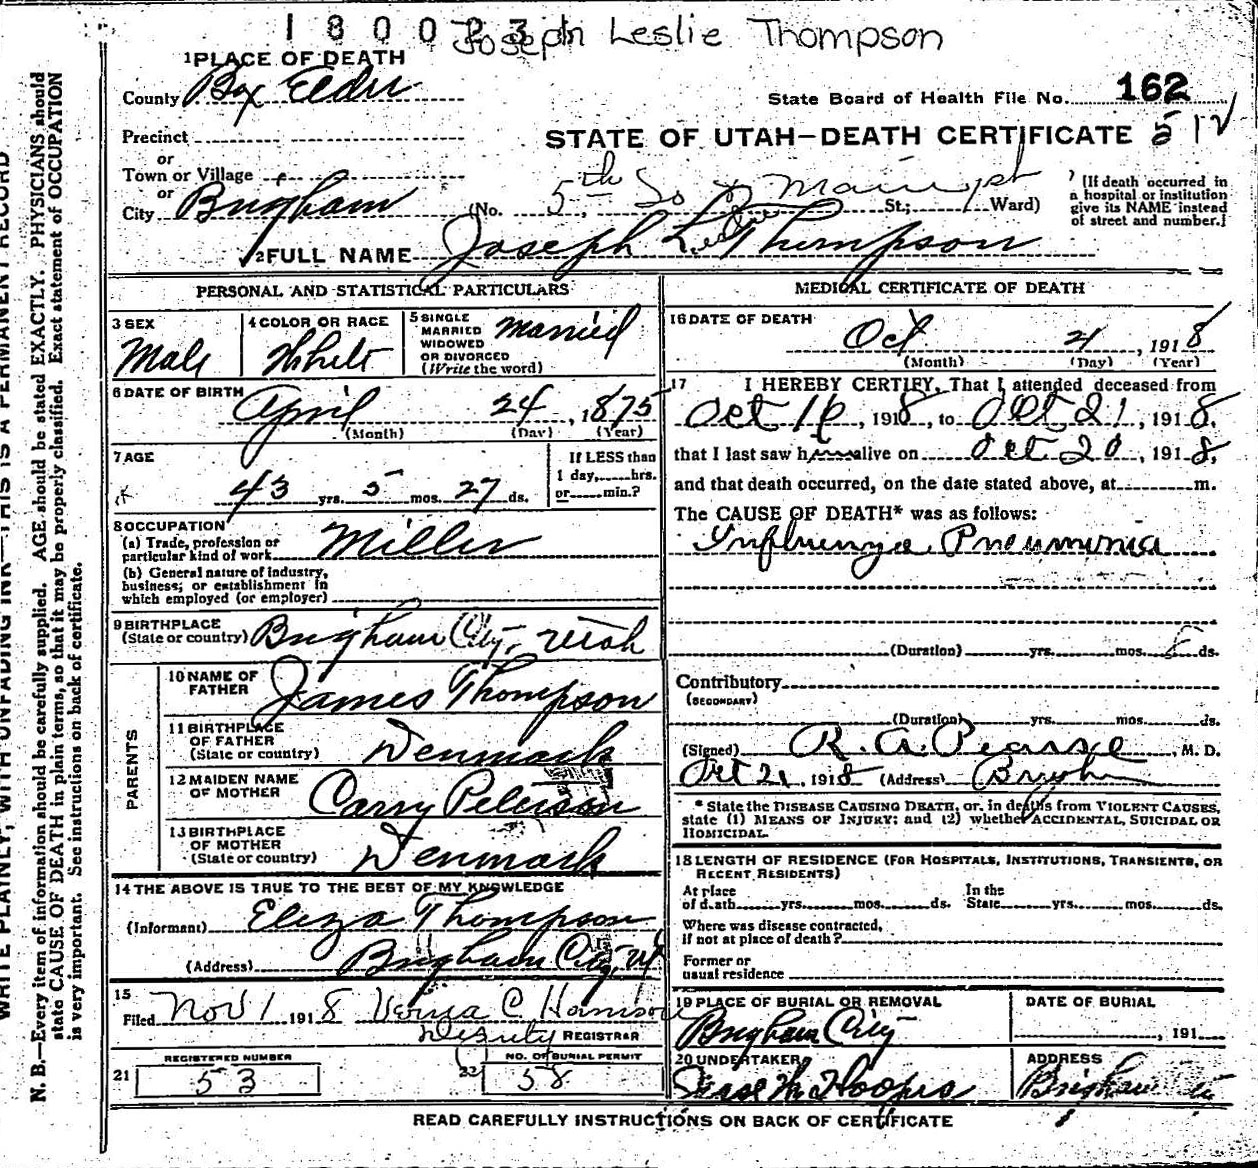 1800231
Joseph Leslie Thompson
1 PLACE OF DEATH
County Box Elder
State Board of Health File No. 162
Precinct
STATE OF UTAH—DEATH CERTIFICATE 512
or
Town or Village
or
City Brigham (No. 5th So & Main St.; Ward)
(If death occurred in a hospital or institution give its NAME instead of street and number.)
2 FULL NAME Joseph Leslie Thompson
PERSONAL AND STATISTICAL PARTICULARS
3 SEX
Male
4 COLOR OR RACE
White
5 SINGLE
MARRIED
WIDOWED
OR DIVORCED
(Write the word)
Married
6 DATE OF BIRTH
April 24, 1875
(Month) (Day) (Year)
7 AGE
43 yrs. 5 mos. 27 ds.
If LESS than
1 day, hrs.
or min.?
8 OCCUPATION
(a) Trade, profession or
particular kind of work Miller
(b) General nature of industry,
business; or establishment in
which employed (or employer)
9 BIRTHPLACE
(State or country) Brigham City, Utah
PARENTS
10 NAME OF
FATHER James Thompson
11 BIRTHPLACE
OF FATHER
(State or country) Denmark
12 MAIDEN NAME
OF MOTHER Carry Peterson
13 BIRTHPLACE
OF MOTHER
(State or country) Denmark
14 THE ABOVE IS TRUE TO THE BEST OF MY KNOWLEDGE
(Informant) Eliza Thompson
(Address) Brigham City, Ut
15
Filed Nov 1 1918 Verna C. Harrison
Deputy REGISTRAR
REGISTERED NUMBER
21 53
NO. OF BURIAL PERMIT
22 58
MEDICAL CERTIFICATE OF DEATH
16 DATE OF DEATH
Oct 21, 1918
(Month) (Day) (Year)
17 I HEREBY CERTIFY, That I attended deceased from
Oct 16, 1918, to Oct 21, 1918,
that I last saw him alive on Oct 20, 1918,
and that death occurred, on the date stated above, at m.
The CAUSE OF DEATH* was as follows:
Influenza Pneumonia
(Duration) yrs. mos. ds.
Contributory
(SECONDARY)
(Duration) yrs. mos. ds.
(Signed) R. A. Pearse, M. D.
Oct 21, 1918 (Address) Brigham
* State the DISEASE CAUSING DEATH, or, in deaths from VIOLENT CAUSES,
state (1) MEANS OF INJURY; and (2) whether ACCIDENTAL, SUICIDAL OR
HOMICIDAL.
18 LENGTH OF RESIDENCE (FOR HOSPITALS, INSTITUTIONS, TRANSIENTS, OR
RECENT RESIDENTS)
At place
of death yrs. mos. ds.
In the
State yrs. mos. ds.
Where was disease contracted,
if not at place of death?
Former or
usual residence
19 PLACE OF BURIAL OR REMOVAL
Brigham City
DATE OF BURIAL
, 191
20 UNDERTAKER
Hoopes
ADDRESS
Brigham City
READ CAREFULLY INSTRUCTIONS ON BACK OF CERTIFICATE
WRITE PLAINLY, WITH UNFADING INK—THIS IS A PERMANENT RECORD
N. B.—Every item of information should be carefully supplied. AGE should be stated EXACTLY. PHYSICIANS should
state CAUSE OF DEATH in plain terms, so that it may be properly classified. Exact statement of OCCUPATION
is very important. See instructions on back of certificate.